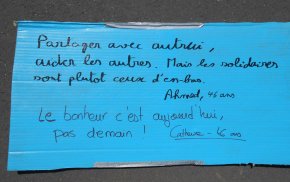 Partager avec autrui,
aider les autres. Mais les solidaires
sont plutot ceux d'en-bas.
Ahmed, 46 ans
Le bonheur c'est aujourd'hui,
pas demain !
Catherine - 46 ans